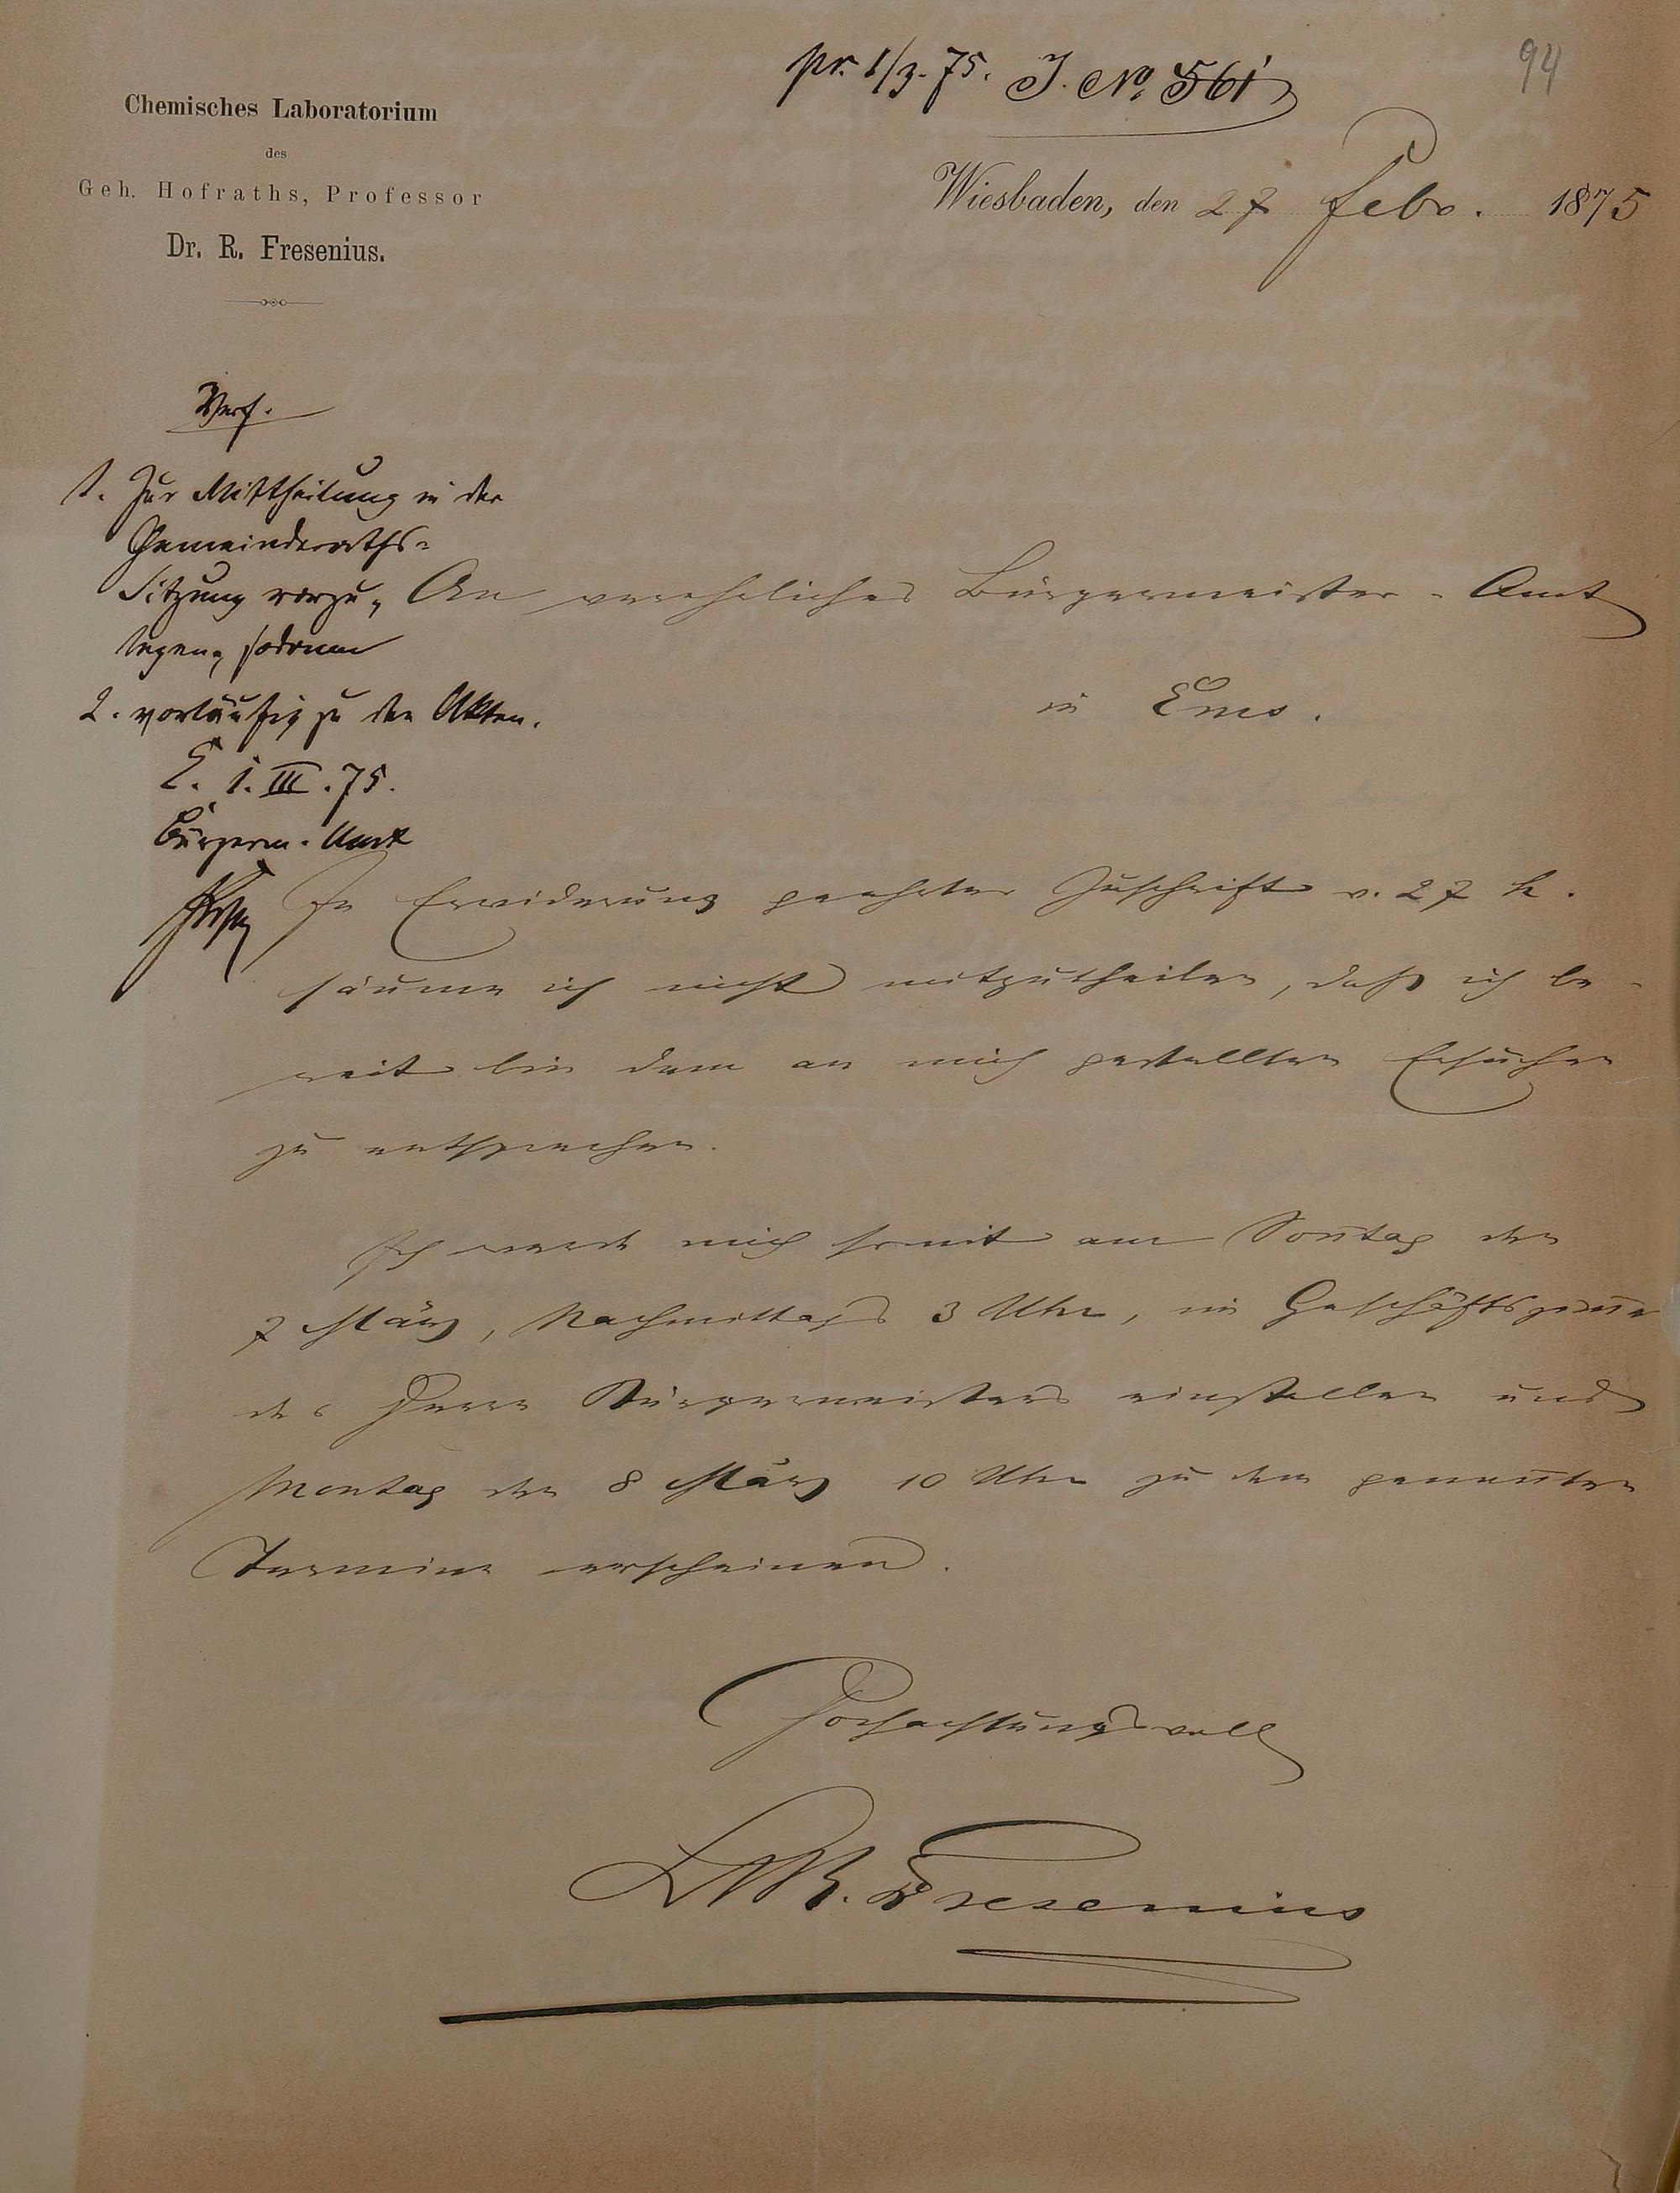 94
pr. 1/3. 75. J. No. 561
Chemisches Laboratorium
des
Geh. Hofraths, Professor
Dr. R. Fresenius.
Wiesbaden, den 27 Febr. 1875
Verf.
1. Zur Mittheilung in der
Gemeinderaths-
Sitzung vorzu-
legen, sodann
2. vorläufig zu den Akten.
E. 1. III. 75.
Bürgerm. Amt
An verehrliches Bürgermeister-Amt
in Ems.
In Erwiderung geehrter Zuschrift v. 27 h.
säume ich nicht mitzutheilen, daß ich be-
reit bin dem an mich gestellten Ersuchen
zu entsprechen.
Ich werde mich somit am Sonntag den
7 März, Nachmittags 3 Uhr, im Geschäftszimmer
des Herrn Bürgermeisters einstellen und
Montag den 8 März 10 Uhr zu dem genannten
Termine erscheinen.
Hochachtungsvoll
Dr. R. Fresenius